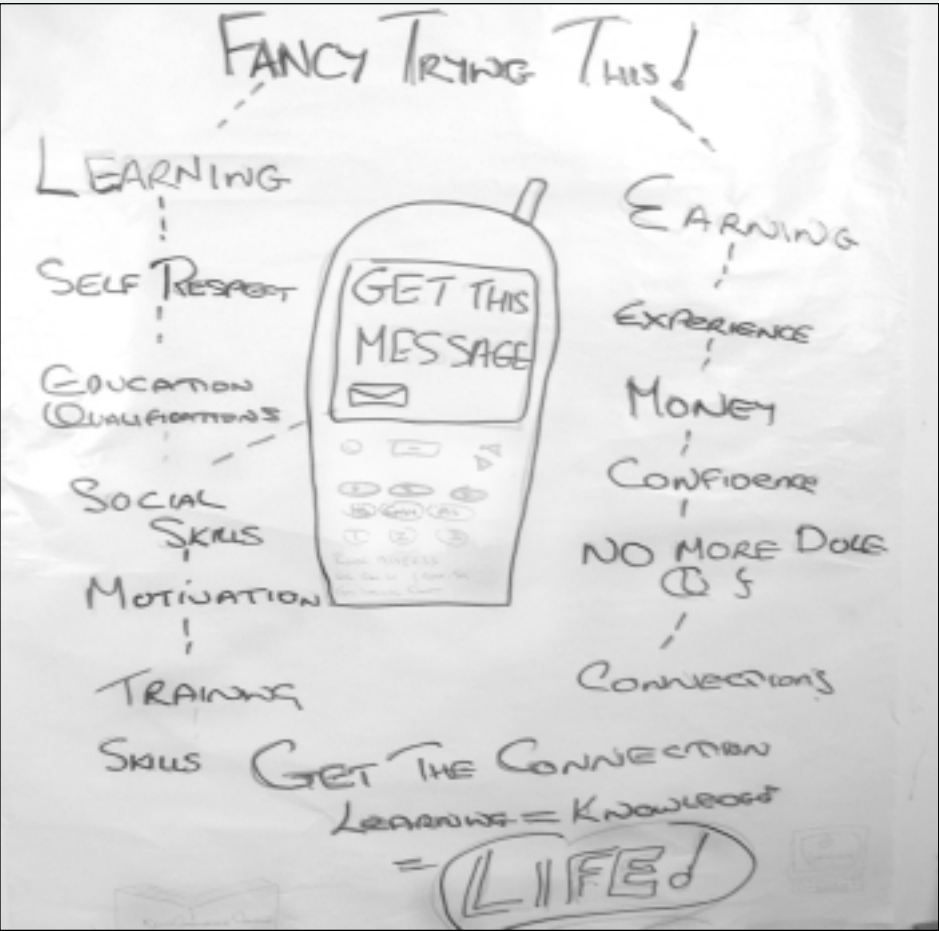 FANCY TRYING THIS!
LEARNING
SELF RESPECT
EDUCATION
QUALIFICATIONS
SOCIAL
SKILLS
MOTIVATION
TRAINING
SKILLS
GET THIS
MESSAGE
1 2 3
EARNING
EXPERIENCE
MONEY
CONFIDENCE
NO MORE DOLE
CONNECTIONS
GET THE CONNECTION
LEARNING = KNOWLEDGE
= LIFE!